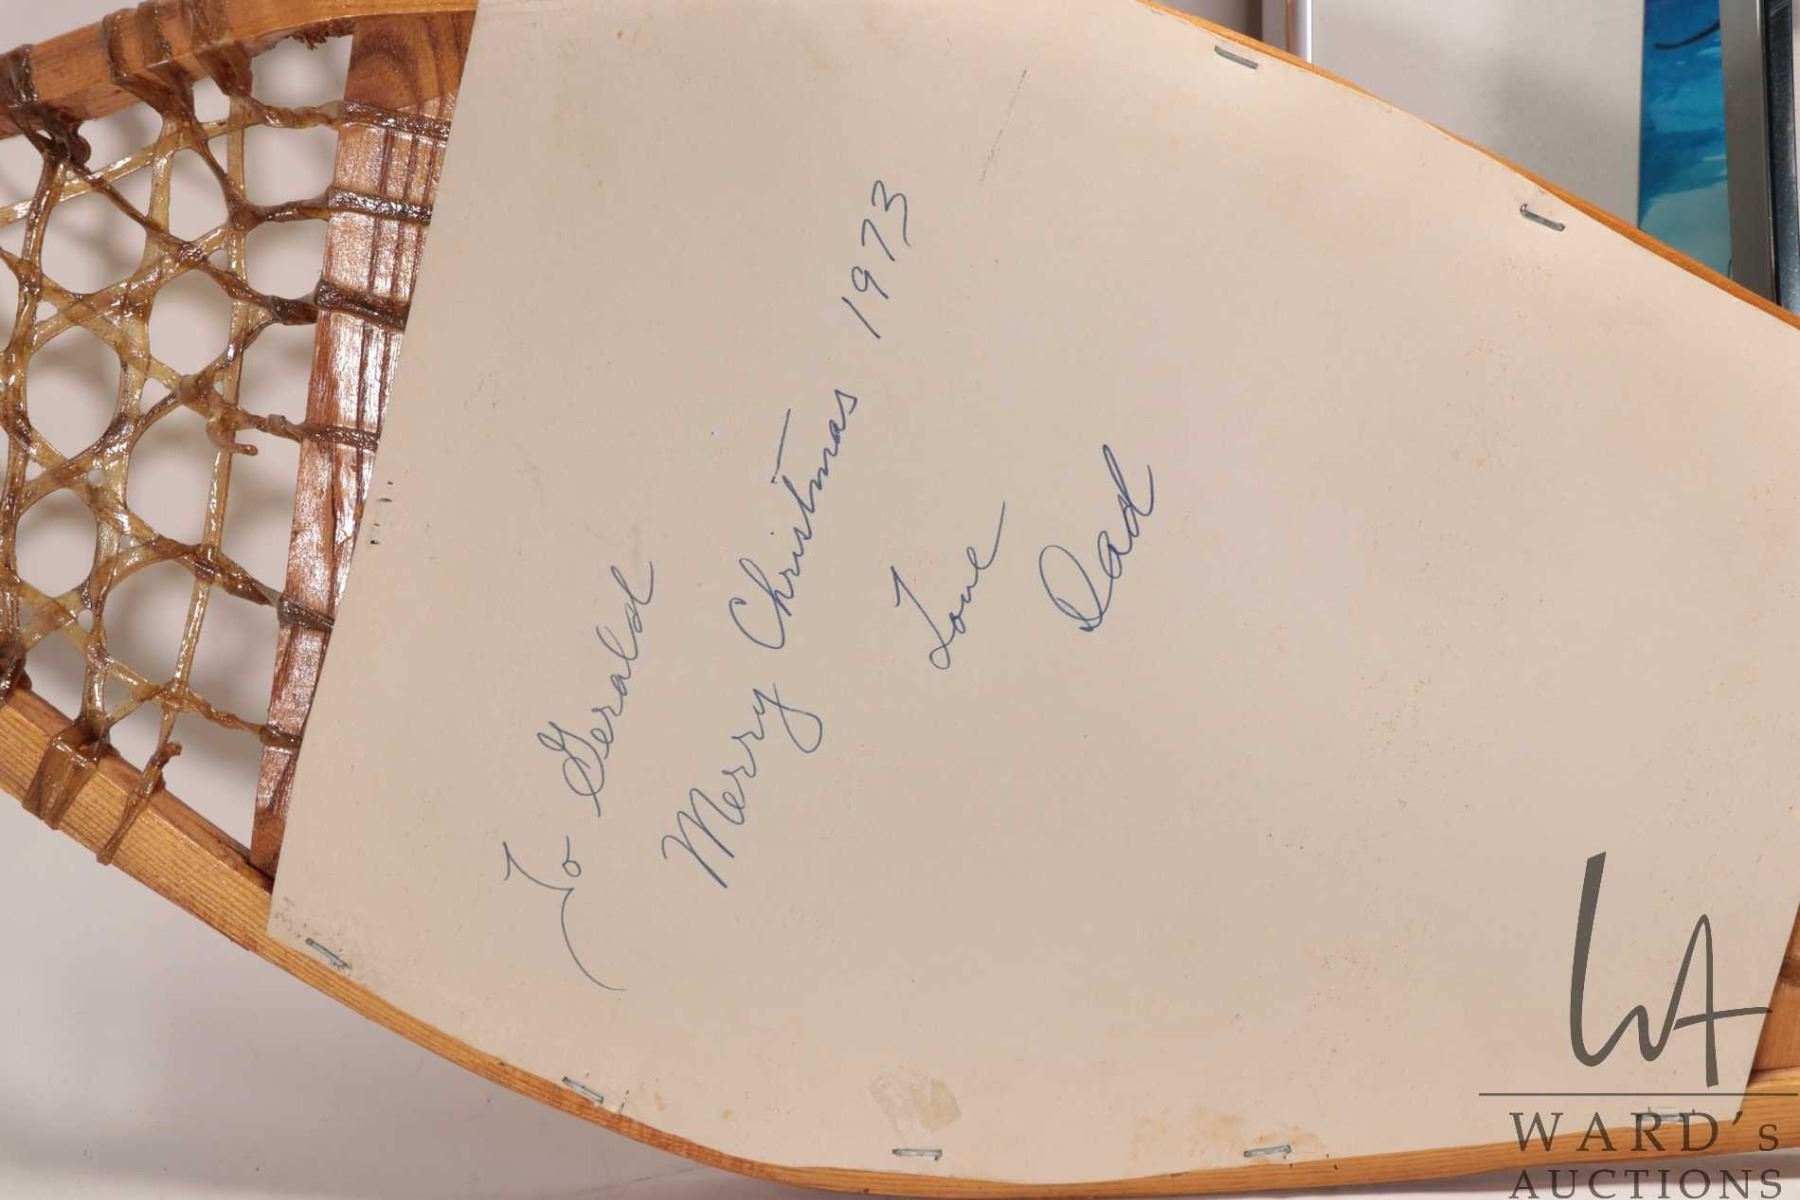 To Gerald
Merry Christmas 1973
Love
Dad
WA
WARD's
AUCTIONS